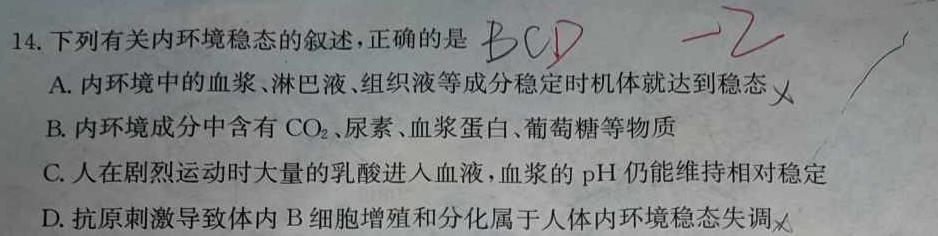 14. 下列有关内环境稳态的叙述,正确的是 BCD -2
A. 内环境中的血浆、淋巴液、组织液等成分稳定时机体就达到稳态 ×
B. 内环境成分中含有 CO₂、尿素、血浆蛋白、葡萄糖等物质
C. 人在剧烈运动时大量的乳酸进入血液,血浆的 pH 仍能维持相对稳定
D. 抗原刺激导致体内 B 细胞增殖和分化属于人体内环境稳态失调 ×